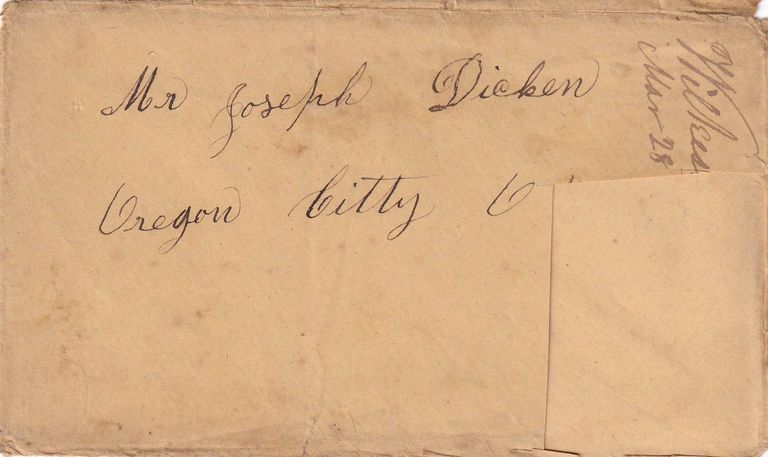 Mr Joseph Dicken
Oregon Citty O
Mar 28